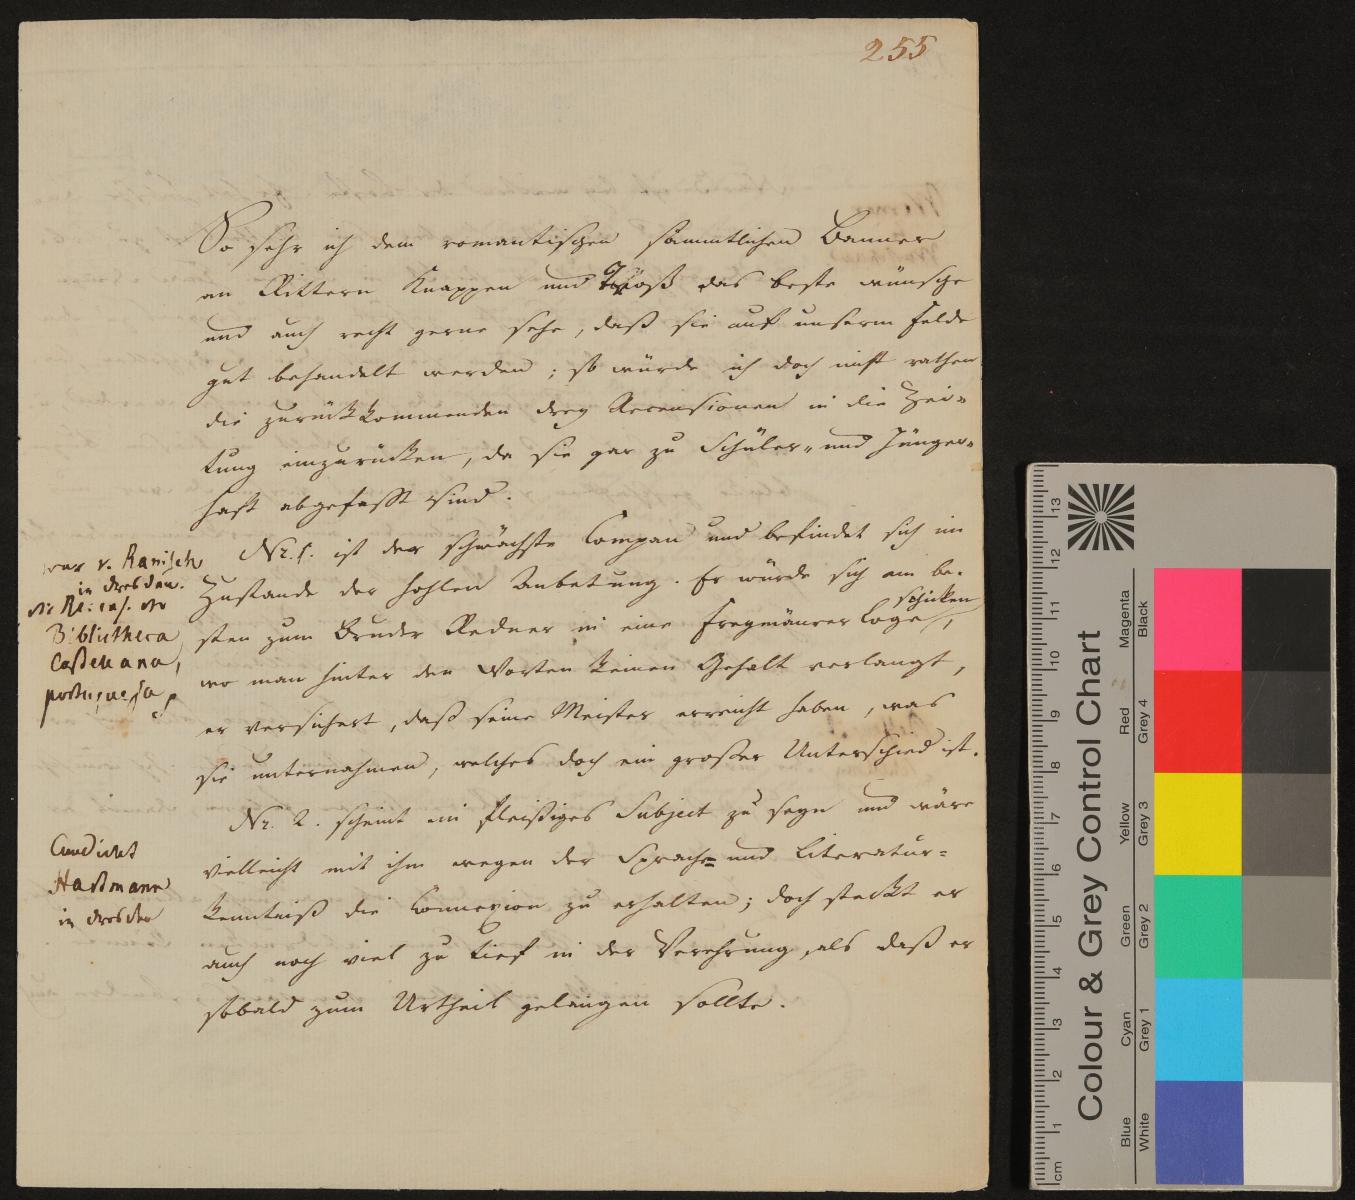 255
So sehr ich dem romantischen sämmtlichen Banner
an Rittern Knappen und Troß das beste wünsche
und auch recht gerne sehe, daß sie auf unserm Felde
gut behandelt werden; so würde ich doch nicht rathen
die zurückkommenden drey Recensionen in die Zei-
tung einzurücken, da sie gar zu Schüler- und Jünger-
haft abgefaßt sind.
Nr. 1. ist der schwächste Compan und befindet sich im
Zustande der hohlen Anbetung. Er würde sich am be-
sten zum Bruder Redner in eine Freymäurer Loge schicken,
wo man hinter den Worten keinen Gehalt verlangt,
er versichert, daß seine Meister erreicht haben, was
sie unternahmen, welches doch ein großer Unterschied ist.
Nr. 2. scheint ein fleißiges Subject zu seyn und wäre
vielleicht mit ihm wegen der Sprach- und Literatur-
kenntniß die Connexion zu erhalten; doch steckt er
auch noch viel zu tief in der Verehrung, als daß er
sobald zum Urtheil gelangen sollte.
war v. Ranisch
in Dresden.
die Recens. der
Bibliotheca
Castellana,
portuguesa
Candidat
Hastmann
in Dresden
Colour & Grey Control Chart
Blue Cyan Green Yellow Red Magenta
White Grey 1 Grey 2 Grey 3 Grey 4 Black
cm 1 2 3 4 5 6 7 8 9 10 11 12 13